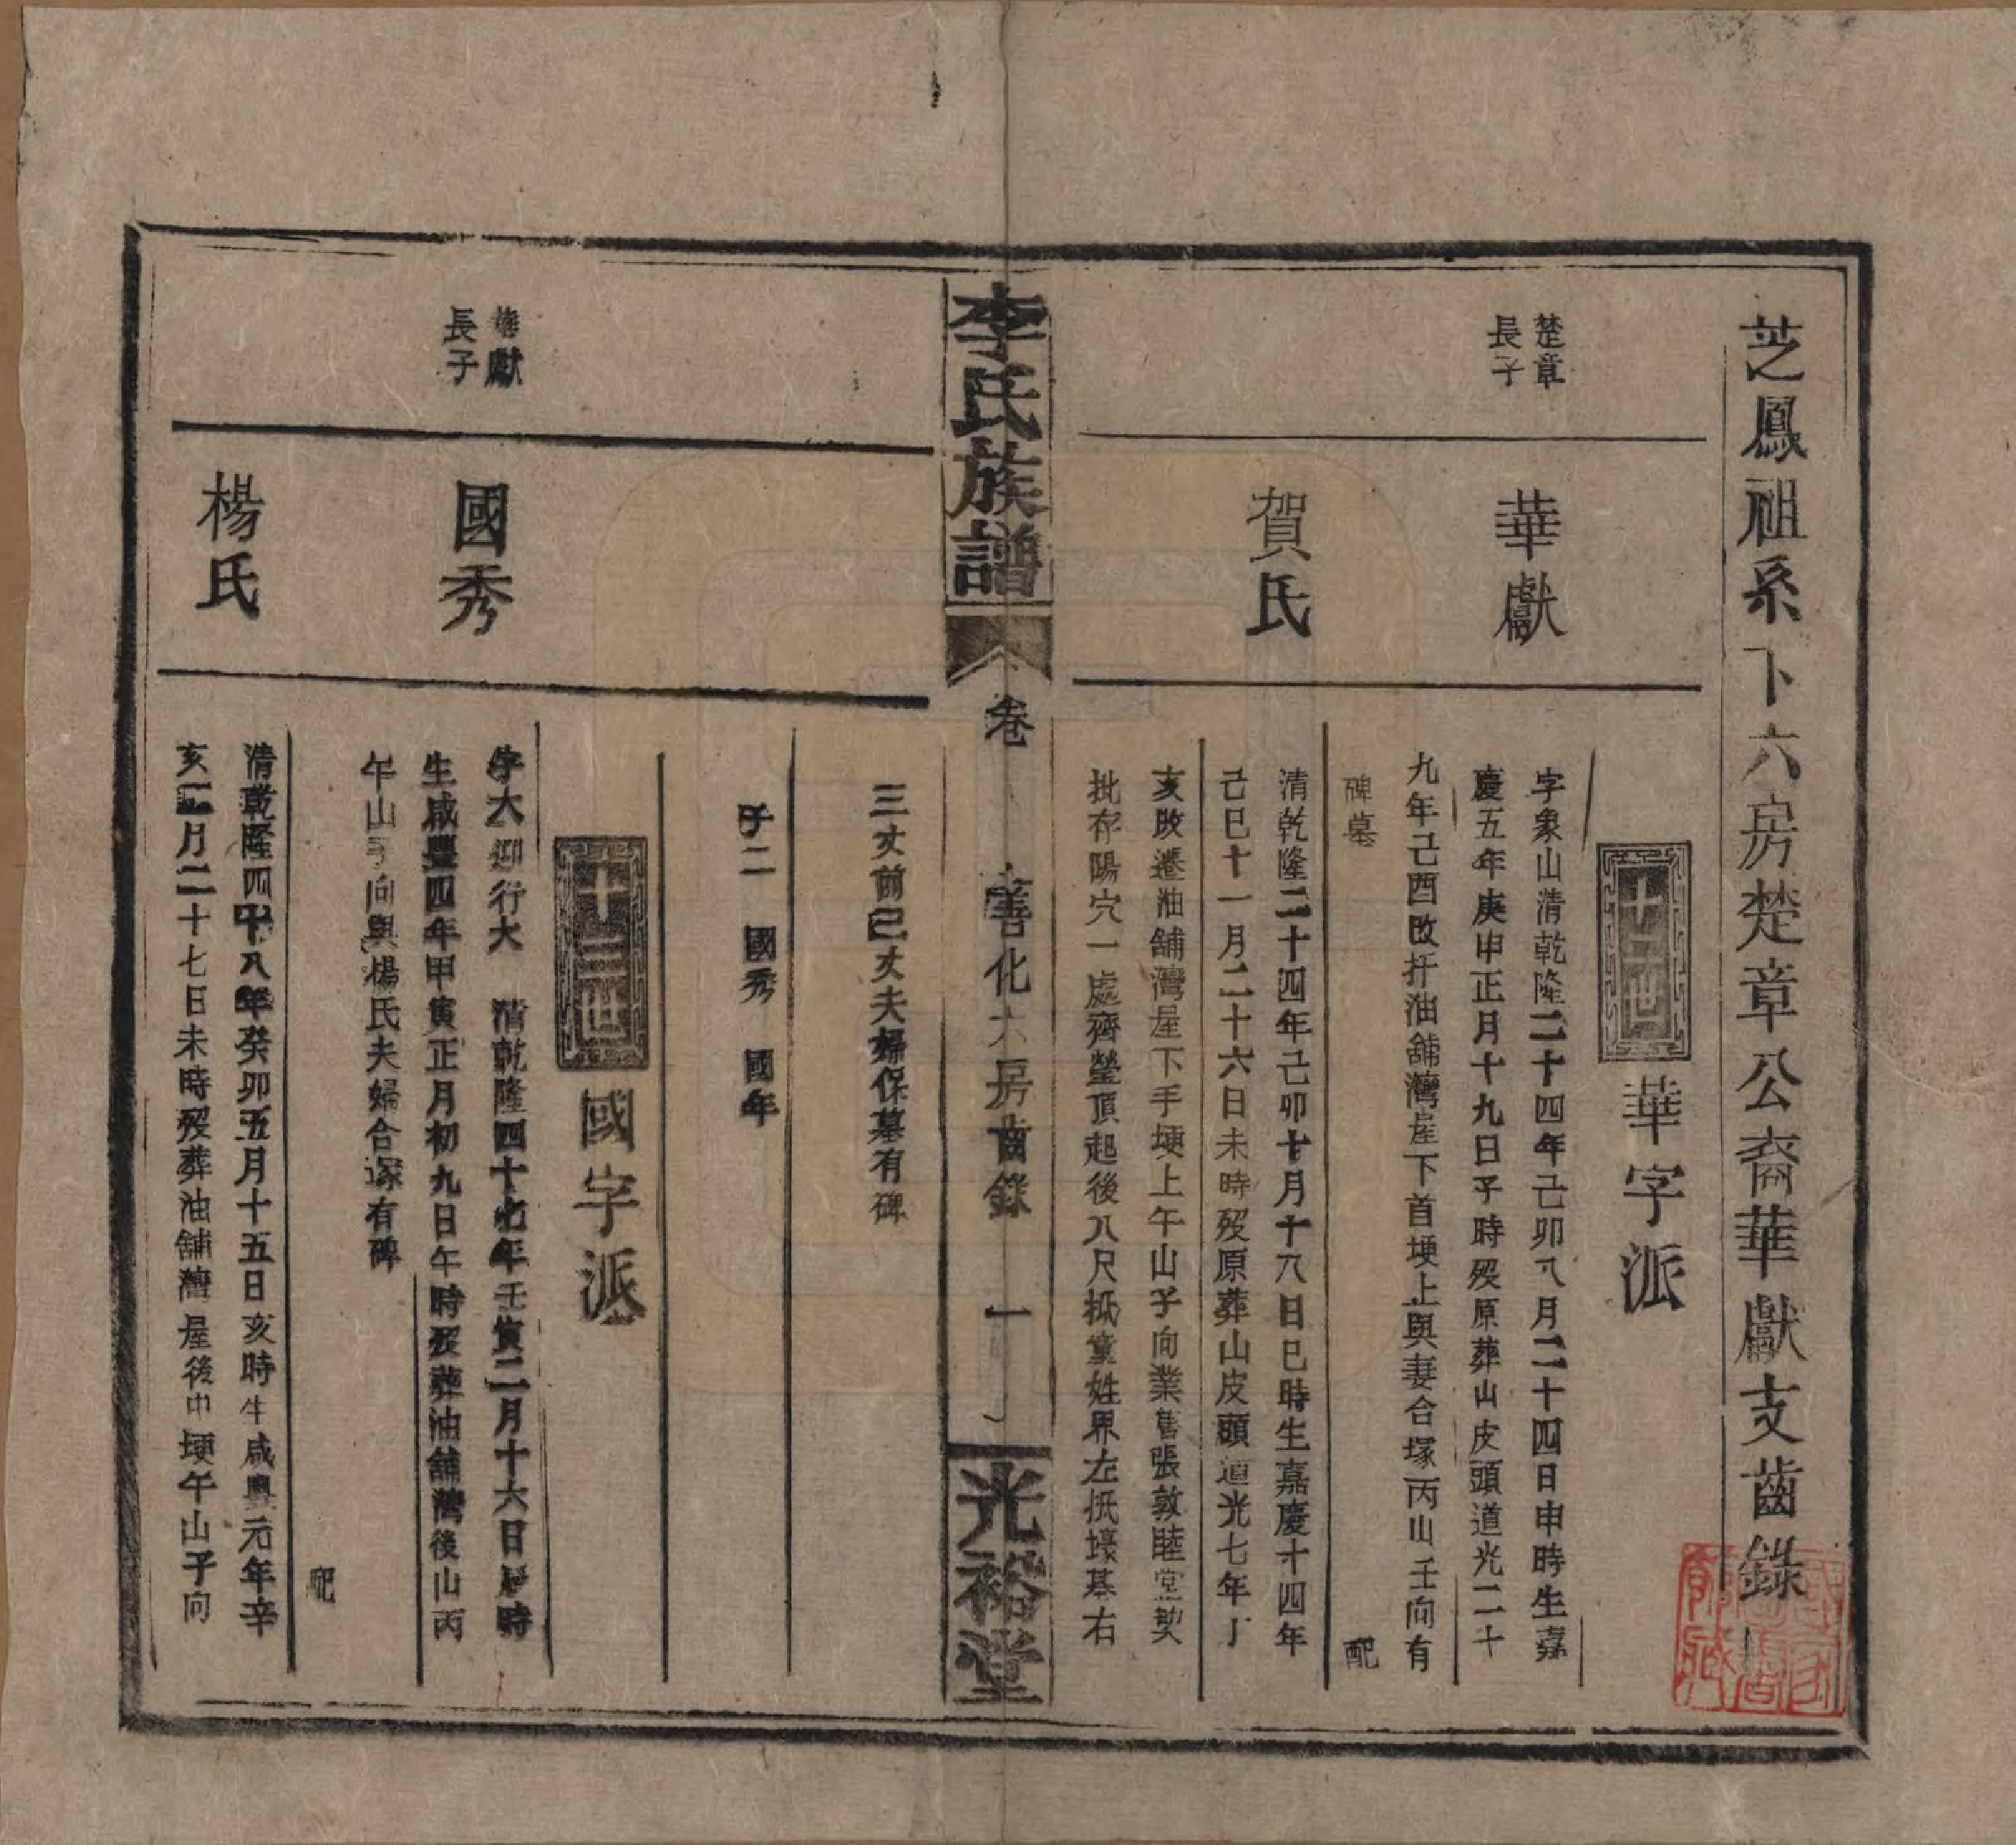 芝鳳祖系下六房楚章公裔華獻支齒錄
十二世
華字派
楚章
長子
華獻
字象山清乾隆二十四年己卯八月二十四日申時生嘉
慶五年庚申正月十九日子時歿原葬山皮頭道光二十
九年己酉改扦油舖灣屋下首埂上與妻合塚丙山壬向有
碑墓　配
賀氏
清乾隆二十四年己卯七月十八日巳時生嘉慶十四年
己巳十一月二十六日未時歿原葬山皮頭道光七年丁
亥改遷油舖灣屋下手埂上午山子向業舊張敦睦堂契
批存陽穴一處齊塋頂起後八尺抵童姓界左抵壕基右
李氏族譜
卷
善化六房齒錄
一
光裕堂
三丈前己丈夫婦保墓有碑
子二　國秀　國年
十三世
國字派
華獻
長子
國秀
字大　行大　清乾隆四十七年壬寅二月十六日　時
生咸豐四年甲寅正月初九日午時歿葬油舖灣後山丙
午山子向與楊氏夫婦合塚有碑
配
楊氏
清乾隆四十八年癸卯五月十五日亥時生咸豐元年辛
亥二月二十七日未時歿葬油舖灣屋後中埂午山子向